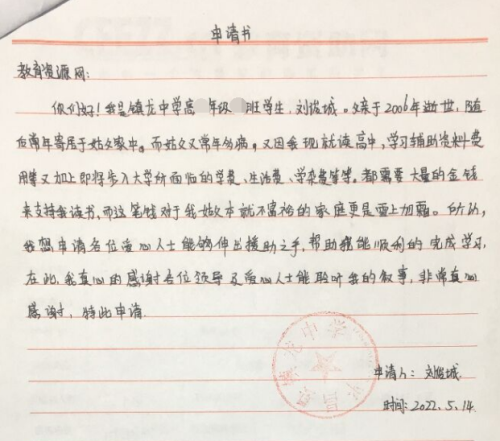 申请书
教育资源网:
你们好!我是镇龙中学高 年级 班学生,刘俊城。父亲于2006年逝世,随
后常年寄居于姑父家中。而姑父又常年分病,又因我现就读高中,学习辅助资料费
用等又加上即将步入大学所面临的学费、生活费、学杂费等等。都需要大量的金钱
来支持我读书,而这笔钱对于我姑父本就不富裕的家庭更是雪上加霜。所以,
我想申请各位爱心人士能够伸出援助之手,帮助我能顺利的完成学习,
在此,我真心的感谢各位领导及爱心人士能聆听我的叙事,非常真心
感谢,特此申请.
镇龙中学
申请人:刘俊城.
时间:2022.5.14